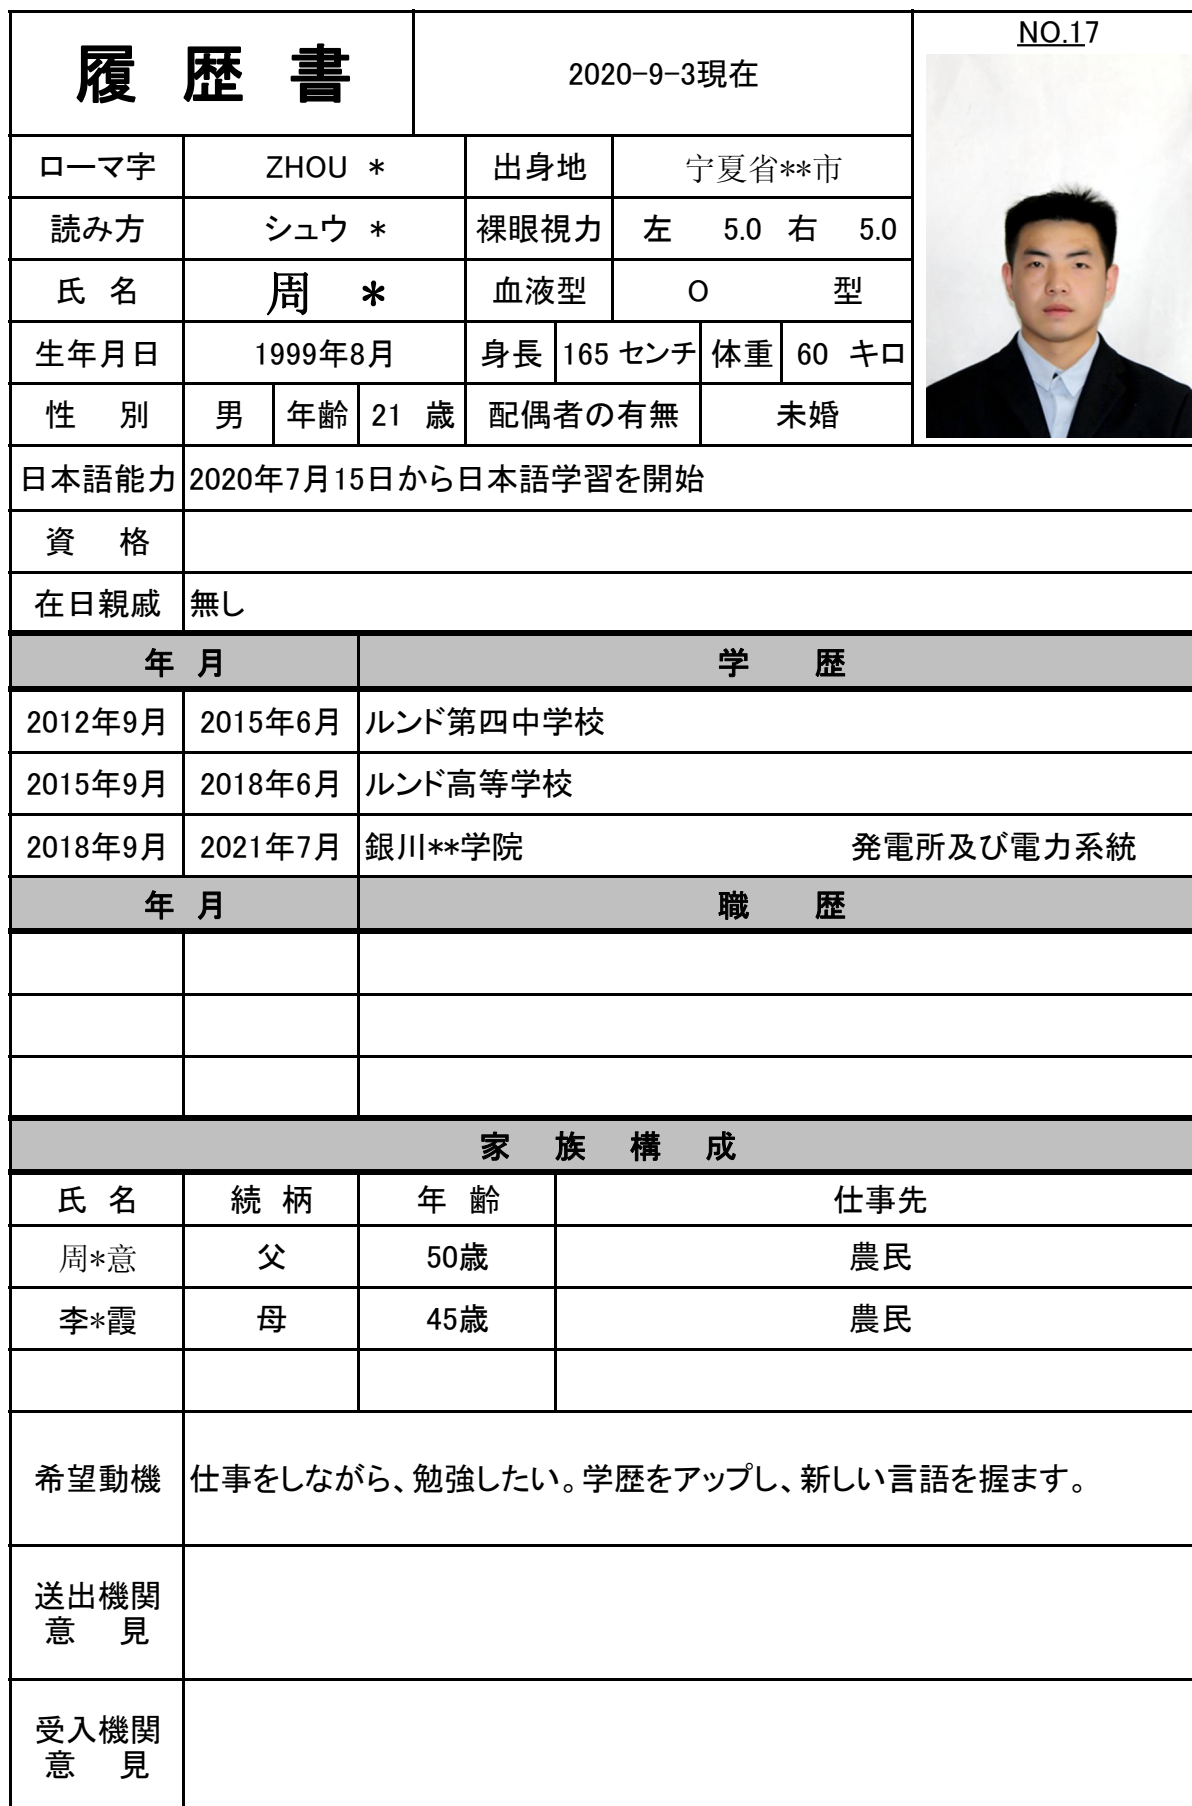 履 歴 書 2020-9-3現在 NO.17
ローマ字 ZHOU * 出身地 宁夏省**市
読み方 シュウ * 裸眼視力 左 5.0 右 5.0
氏 名 周 * 血液型 O 型
生年月日 1999年8月 身長 165 センチ 体重 60 キロ
性 別 男 年齢 21 歳 配偶者の有無 未婚
日本語能力 2020年7月15日から日本語学習を開始
資 格
在日親戚 無し
年 月 学 歴
2012年9月 2015年6月 ルンド第四中学校
2015年9月 2018年6月 ルンド高等学校
2018年9月 2021年7月 銀川**学院 発電所及び電力系統
年 月 職 歴
家 族 構 成
氏 名 続 柄 年 齢 仕事先
周*意 父 50歳 農民
李*霞 母 45歳 農民
希望動機 仕事をしながら、勉強したい。学歴をアップし、新しい言語を握ます。
送出機関
意 見
受入機関
意 見